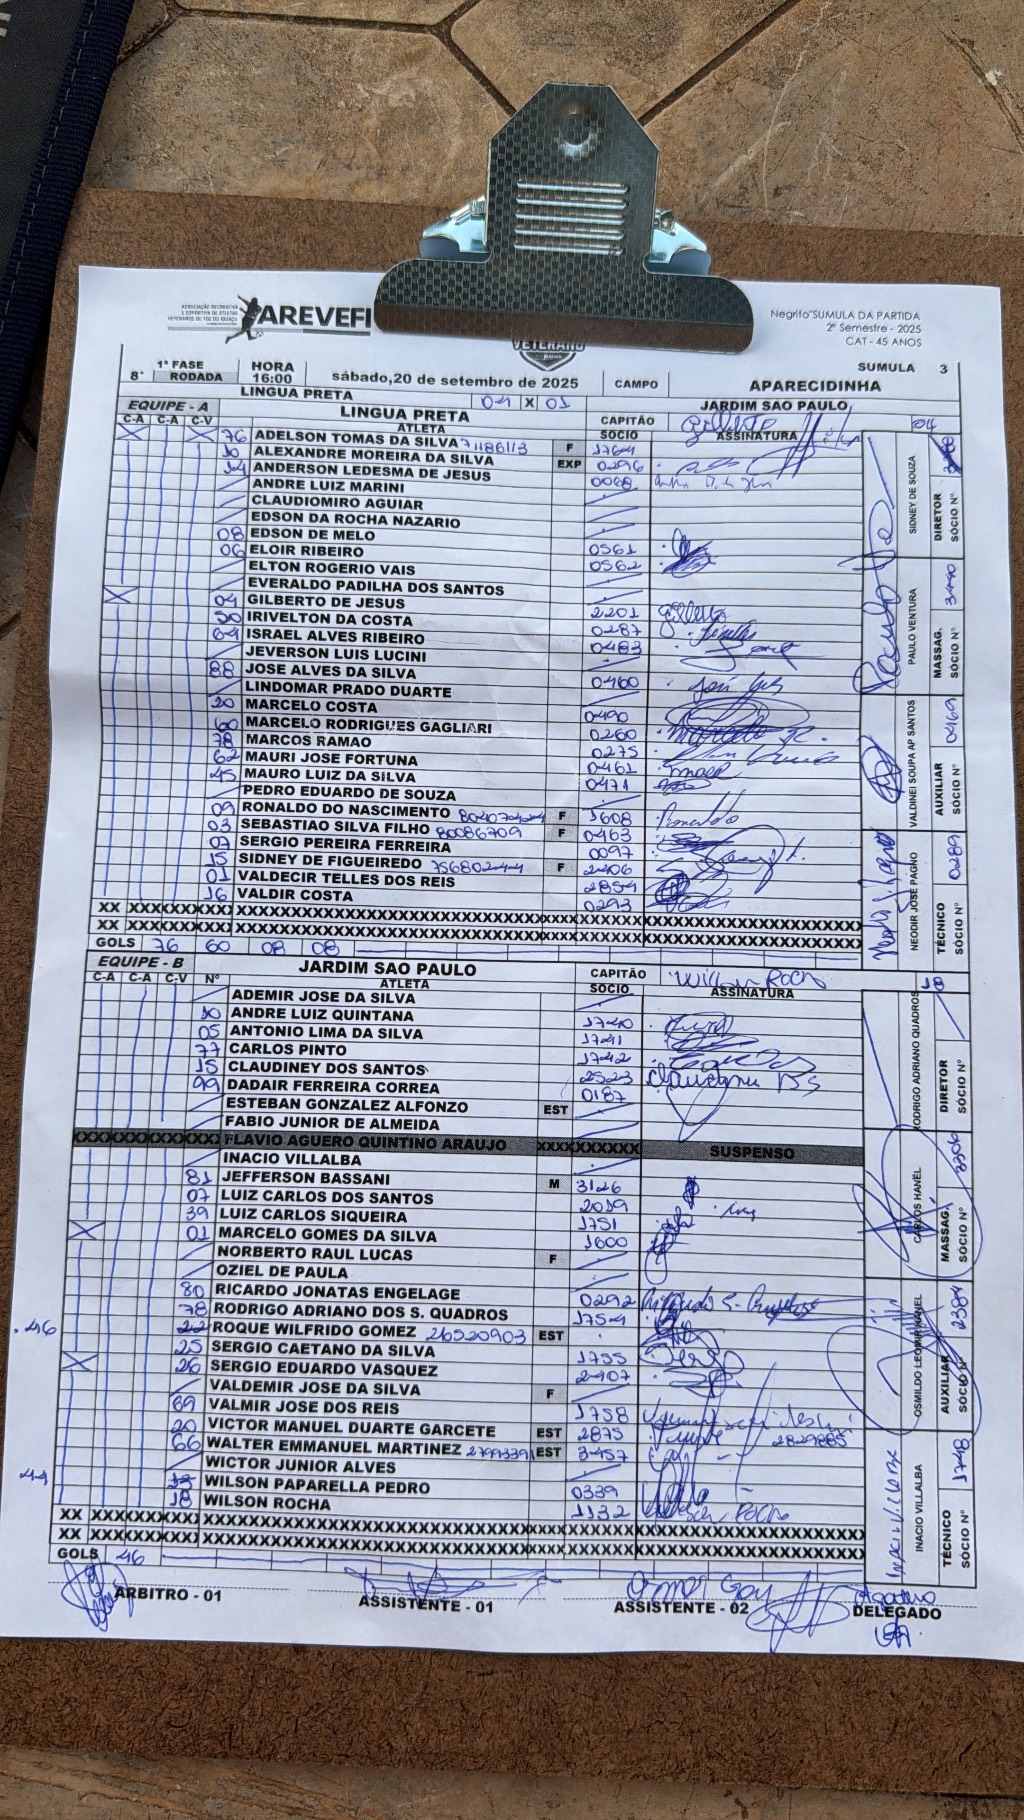 ASSOCIAÇÃO RECREATIVA
E ESPORTIVA DE ATLETAS
VETERANOS DE FOZ DO IGUAÇU
AREVEFI
VETERANO
Negrito"SUMULA DA PARTIDA
2º Semestre - 2025
CAT - 45 ANOS
SUMULA 3
8ª 1ª FASE RODADA HORA 16:00 sábado,20 de setembro de 2025 CAMPO APARECIDINHA
LINGUA PRETA 04 X 01 JARDIM SAO PAULO
EQUIPE - A LINGUA PRETA CAPITÃO Gilberto 04
C-A C-A C-V ATLETA SOCIO ASSINATURA
76 ADELSON TOMAS DA SILVA 71186113 F 1764
10 ALEXANDRE MOREIRA DA SILVA EXP 0296
14 ANDERSON LEDESMA DE JESUS 0068
ANDRE LUIZ MARINI
CLAUDIOMIRO AGUIAR
EDSON DA ROCHA NAZARIO
08 EDSON DE MELO 0561
06 ELOIR RIBEIRO 0562
ELTON ROGERIO VAIS
EVERALDO PADILHA DOS SANTOS
04 GILBERTO DE JESUS 2201 Gilberto
30 IRIVELTON DA COSTA 0287
64 ISRAEL ALVES RIBEIRO 0483
JEVERSON LUIS LUCINI
88 JOSE ALVES DA SILVA 0460
LINDOMAR PRADO DUARTE
20 MARCELO COSTA 0490
60 MARCELO RODRIGUES GAGLIARI 0260
78 MARCOS RAMAO 0275
62 MAURI JOSE FORTUNA 0461
45 MAURO LUIZ DA SILVA 0471
PEDRO EDUARDO DE SOUZA
09 RONALDO DO NASCIMENTO F 1608 Ronaldo
03 SEBASTIAO SILVA FILHO 80086709 F 0463
07 SERGIO PEREIRA FERREIRA 0097
15 SIDNEY DE FIGUEIREDO 75680244 F 2406
01 VALDECIR TELLES DOS REIS 2854
16 VALDIR COSTA 0293
XX XXXXXXXXXXXXXXXXXXXXXXXXXXXXXXXXXXXXXXXXXXXXXXXX
XX XXXXXXXXXXXXXXXXXXXXXXXXXXXXXXXXXXXXXXXXXXXXXXXX
GOLS 76 60 08 08
SIDNEY DE SOUZA DIRETOR SÓCIO Nº
PAULO VENTURA MASSAG. SÓCIO Nº 3440
VALDINEI SOUPA AP SANTOS AUXILIAR SÓCIO Nº 0469
NEODIR JOSE PAGNO TÉCNICO SÓCIO Nº 0289
EQUIPE - B JARDIM SAO PAULO CAPITÃO Wilson Rocha 18
C-A C-A C-V Nº ATLETA SOCIO ASSINATURA
ADEMIR JOSE DA SILVA
10 ANDRE LUIZ QUINTANA 1740
05 ANTONIO LIMA DA SILVA 1741
77 CARLOS PINTO 1742
15 CLAUDINEY DOS SANTOS 2523
99 DADAIR FERREIRA CORREA 0187
ESTEBAN GONZALEZ ALFONZO EST
FABIO JUNIOR DE ALMEIDA
XXXXXXXXXXXXXXXXX FLAVIO AGUERO QUINTINO ARAUJO XXXXXXXXXX SUSPENSO
INACIO VILLALBA
81 JEFFERSON BASSANI M 3126
07 LUIZ CARLOS DOS SANTOS 2019
39 LUIZ CARLOS SIQUEIRA 1751
01 MARCELO GOMES DA SILVA 1600
NORBERTO RAUL LUCAS F
OZIEL DE PAULA
80 RICARDO JONATAS ENGELAGE 0292
78 RODRIGO ADRIANO DOS S. QUADROS 1754
.46 22 ROQUE WILFRIDO GOMEZ 26520903 EST
25 SERGIO CAETANO DA SILVA 1755
26 SERGIO EDUARDO VASQUEZ 2407
VALDEMIR JOSE DA SILVA F
69 VALMIR JOSE DOS REIS 1758
20 VICTOR MANUEL DUARTE GARCETE EST 2875 2829885
66 WALTER EMMANUEL MARTINEZ EST 3457
WICTOR JUNIOR ALVES
44 13 WILSON PAPARELLA PEDRO 0339
18 WILSON ROCHA 1132
XX XXXXXXXXXXXXXXXXXXXXXXXXXXXXXXXXXXXXXXXXXXXXXXXX
XX XXXXXXXXXXXXXXXXXXXXXXXXXXXXXXXXXXXXXXXXXXXXXXXX
GOLS 46
RODRIGO ADRIANO QUADROS DIRETOR SÓCIO Nº
CARLOS HANEL MASSAG. SÓCIO Nº 3306
OSMILDO LEOMIR HANEL AUXILIAR SÓCIO Nº 2384
INACIO VILLALBA TÉCNICO SÓCIO Nº 1748
ARBITRO - 01 ASSISTENTE - 01 ASSISTENTE - 02 DELEGADO